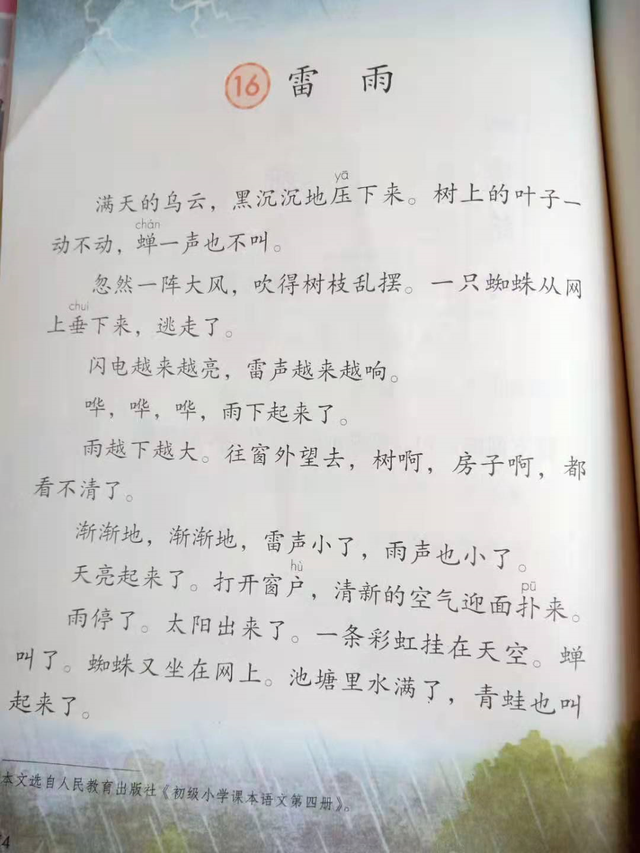 16 雷雨
yā
满天的乌云，黑沉沉地压下来。树上的叶子一
chán
动不动，蝉一声也不叫。
忽然一阵大风，吹得树枝乱摆。一只蜘蛛从网
chuí
上垂下来，逃走了。
闪电越来越亮，雷声越来越响。
哗，哗，哗，雨下起来了。
雨越下越大。往窗外望去，树啊，房子啊，都
看不清了。
渐渐地，渐渐地，雷声小了，雨声也小了。
hù pū
天亮起来了。打开窗户，清新的空气迎面扑来。
雨停了。太阳出来了。一条彩虹挂在天空。蝉
叫了。蜘蛛又坐在网上。池塘里水满了，青蛙也叫
起来了。
本文选自人民教育出版社《初级小学课本语文第四册》。
4